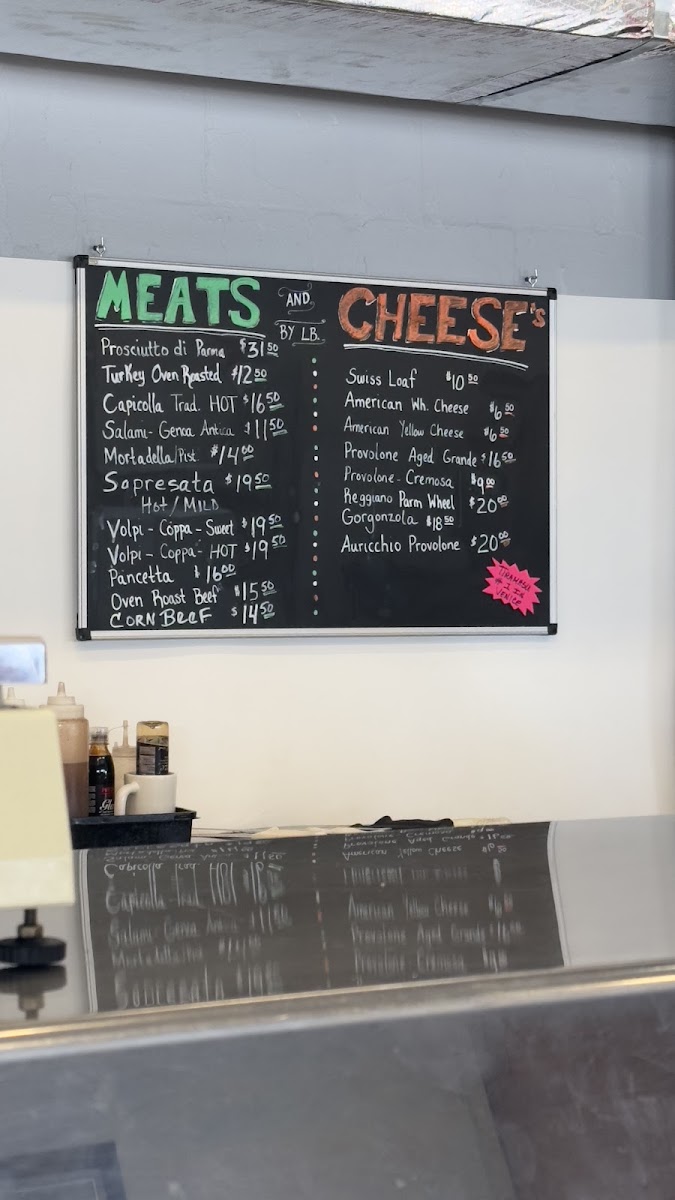 MEATS
AND
BY LB.
CHEESE's
Prosciutto di Parma $31.50
Turkey Oven Roasted $12.50
Capicolla Trad. HOT $16.50
Salami-Genoa Antica $11.50
Mortadella/Pist. $14.00
Sopresata $19.50
Hot/MILD
Volpi-Coppa-Sweet $19.50
Volpi-Coppa-HOT $19.50
Pancetta $16.00
Oven Roast Beef $15.50
CORN BEEF $14.50
Swiss Loaf $10.50
American Wh. Cheese $6.50
American Yellow Cheese $6.50
Provolone Aged Grande $16.50
Provolone-Cremosa $9.00
Reggiano Parm Wheel $20.00
Gorgonzola $18.50
Auricchio Provolone $20.00
TIRAMASU
# 1 IN
VENICE